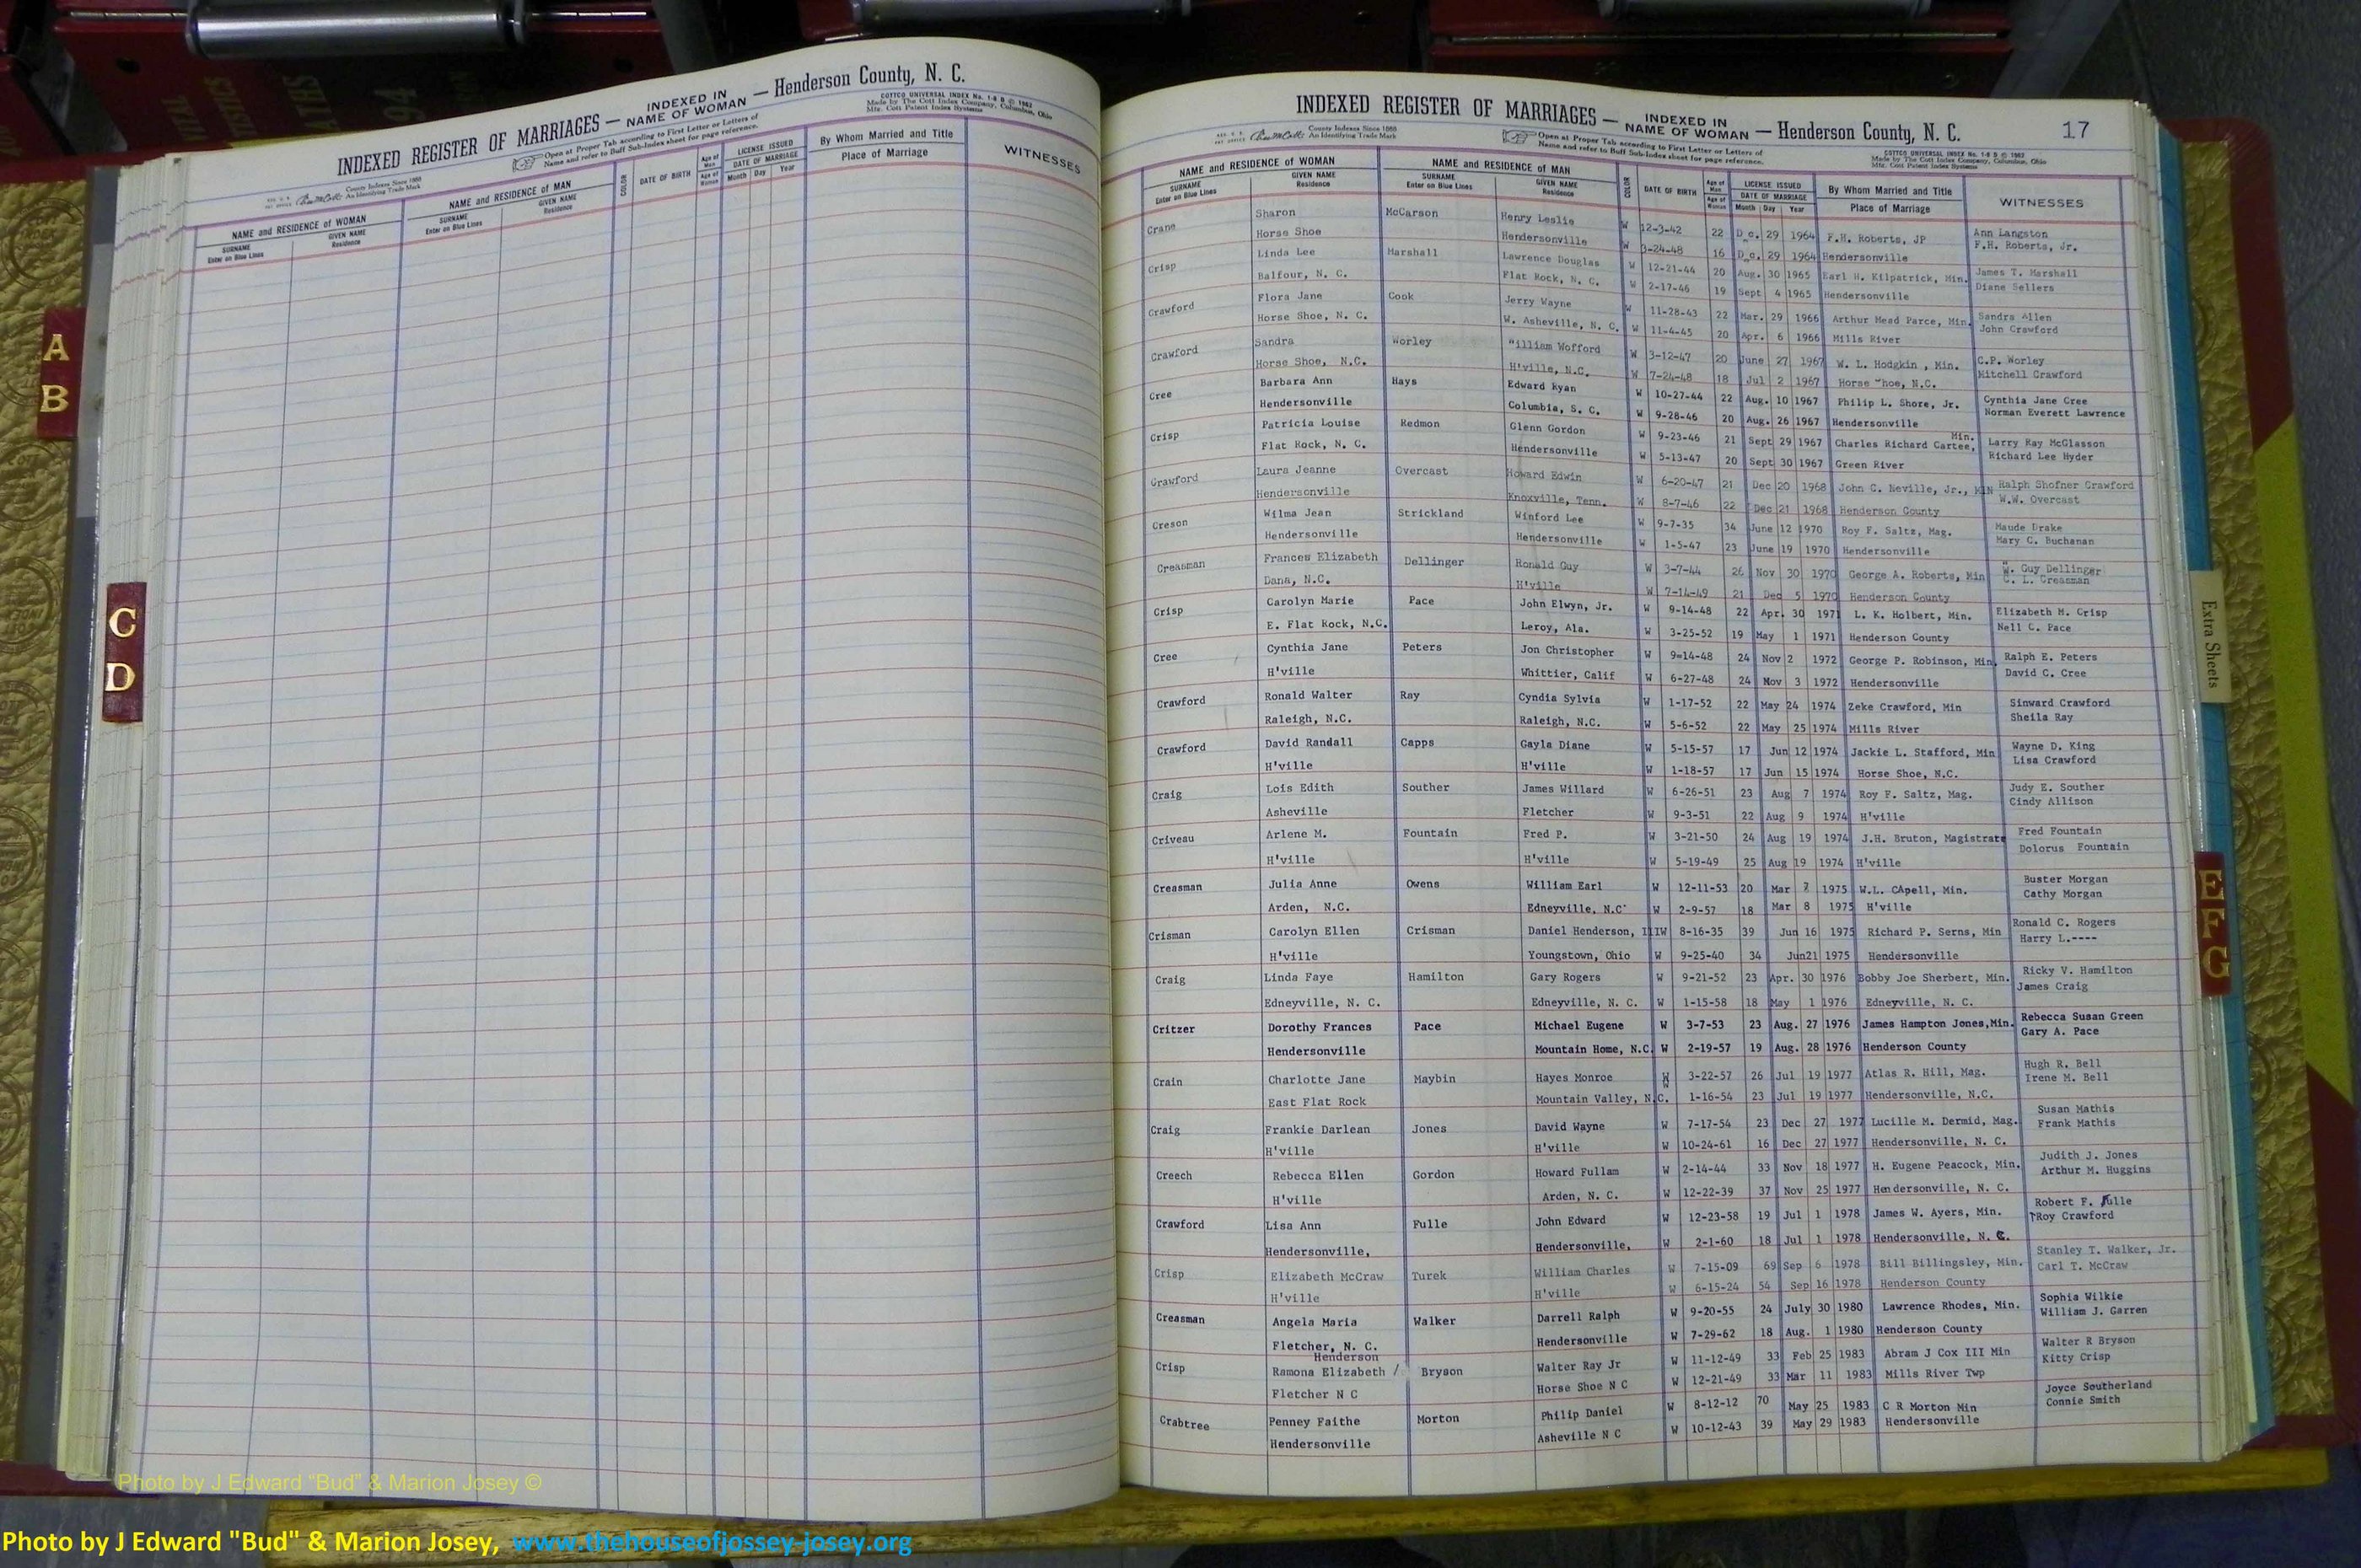 INDEXED REGISTER OF MARRIAGES — INDEXED IN NAME OF WOMAN — Henderson County, N. C.
County Indexes Since 1888
An Identifying Trade Mark
Open at Proper Tab according to First Letter or Letters of
Name and refer to Buff Sub-Index sheet for page reference.
COTTCO UNIVERSAL INDEX No. 1-8 B © 1962
Made by The Cott Index Company, Columbus, Ohio
Mfr. Cott Patent Index Systems
NAME and RESIDENCE OF WOMAN NAME and RESIDENCE OF MAN COLOR DATE OF BIRTH Age of Man Age of Woman LICENSE ISSUED By Whom Married and Title WITNESSES
SURNAME GIVEN NAME SURNAME GIVEN NAME DATE OF MARRIAGE Place of Marriage
Enter on Blue Lines Residence Enter on Blue Lines Residence Month Day Year
INDEXED REGISTER OF MARRIAGES — INDEXED IN NAME OF WOMAN — Henderson County, N. C. 17
County Indexes Since 1888
An Identifying Trade Mark
Open at Proper Tab according to First Letter or Letters of
Name and refer to Buff Sub-Index sheet for page reference.
COTTCO UNIVERSAL INDEX No. 1-8 B © 1962
Made by The Cott Index Company, Columbus, Ohio
Mfr. Cott Patent Index Systems
NAME and RESIDENCE OF WOMAN NAME and RESIDENCE OF MAN COLOR DATE OF BIRTH Age of Man Age of Woman LICENSE ISSUED By Whom Married and Title WITNESSES
SURNAME GIVEN NAME SURNAME GIVEN NAME DATE OF MARRIAGE Place of Marriage
Enter on Blue Lines Residence Enter on Blue Lines Residence Month Day Year
Crane Sharon McCarson Henry Leslie W 12-3-42 22 Dec. 29 1964 F.H. Roberts, JP Ann Langston
Horse Shoe Hendersonville W 3-24-48 16 Dec. 29 1964 Hendersonville F.H. Roberts, Jr.
Crisp Linda Lee Marshall Lawrence Douglas W 12-21-44 20 Aug. 30 1965 Earl H. Kilpatrick, Min. James T. Marshall
Balfour, N. C. Flat Rock, N. C. W 2-17-46 19 Sept 4 1965 Hendersonville Diane Sellers
Crawford Flora Jane Cook Jerry Wayne W 11-28-43 22 Mar. 29 1966 Arthur Mead Parce, Min. Sandra Allen
Horse Shoe, N. C. W. Asheville, N. C. W 11-4-45 20 Apr. 6 1966 Mills River John Crawford
Crawford Sandra Worley William Wofford W 3-12-47 20 June 27 1967 W. L. Hodgkin , Min. C.P. Worley
Horse Shoe, N.C. H'ville, N.C. W 7-24-48 18 Jul 2 1967 Horse Shoe, N.C. Mitchell Crawford
Cree Barbara Ann Hays Edward Ryan W 10-27-44 22 Aug. 10 1967 Philip L. Shore, Jr. Cynthia Jane Cree
Hendersonville Columbia, S. C. W 9-28-46 20 Aug. 26 1967 Hendersonville Norman Everett Lawrence
Crisp Patricia Louise Redmon Glenn Gordon W 9-23-46 21 Sept 29 1967 Charles Richard Cartee, Min. Larry Ray McGlasson
Flat Rock, N. C. Hendersonville W 5-13-47 20 Sept 30 1967 Green River Richard Lee Hyder
Crawford Laura Jeanne Overcast Howard Edwin W 6-20-47 21 Dec 20 1968 John C. Neville, Jr., MIN Ralph Shofner Crawford
Hendersonville Knoxville, Tenn. W 8-7-46 22 Dec 21 1968 Henderson County W.W. Overcast
Creson Wilma Jean Strickland Winford Lee W 9-7-35 34 June 12 1970 Roy F. Saltz, Mag. Maude Drake
Hendersonville Hendersonville W 1-5-47 23 June 19 1970 Hendersonville Mary C. Buchanan
Creasman Frances Elizabeth Dellinger Ronald Guy W 3-7-44 26 Nov 30 1970 George A. Roberts, Min W. Guy Dellinger
Dana, N.C. H'ville W 7-14-49 21 Dec 5 1970 Henderson County C. L. Creasman
Crisp Carolyn Marie Pace John Elwyn, Jr. W 9-14-48 22 Apr. 30 1971 L. K. Holbert, Min. Elizabeth M. Crisp
E. Flat Rock, N.C. Leroy, Ala. W 3-25-52 19 May 1 1971 Henderson County Nell C. Pace
Cree Cynthia Jane Peters Jon Christopher W 9=14-48 24 Nov 2 1972 George P. Robinson, Min. Ralph E. Peters
H'ville Whittier, Calif W 6-27-48 24 Nov 3 1972 Hendersonville David C. Cree
Crawford Ronald Walter Ray Cyndia Sylvia W 1-17-52 22 May 24 1974 Zeke Crawford, Min Sinward Crawford
Raleigh, N.C. Raleigh, N.C. W 5-6-52 22 May 25 1974 Mills River Sheila Ray
Crawford David Randall Capps Gayla Diane W 5-15-57 17 Jun 12 1974 Jackie L. Stafford, Min Wayne D. King
H'ville H'ville W 1-18-57 17 Jun 15 1974 Horse Shoe, N.C. Lisa Crawford
Craig Lois Edith Souther James Willard W 6-26-51 23 Aug 7 1974 Roy F. Saltz, Mag. Judy E. Souther
Asheville Fletcher W 9-3-51 22 Aug 9 1974 H'ville Cindy Allison
Criveau Arlene M. Fountain Fred P. W 3-21-50 24 Aug 19 1974 J.H. Bruton, Magistrate Fred Fountain
H'ville H'ville W 5-19-49 25 Aug 19 1974 H'ville Dolorus Fountain
Creasman Julia Anne Owens William Earl W 12-11-53 20 Mar 7 1975 W.L. CApell, Min. Buster Morgan
Arden, N.C. Edneyville, N.C W 2-9-57 18 Mar 8 1975 H'ville Cathy Morgan
Crisman Carolyn Ellen Crisman Daniel Henderson, III W 8-16-35 39 Jun 16 1975 Richard P. Serns, Min Ronald C. Rogers
H'ville Youngstown, Ohio W 9-25-40 34 Jun21 1975 Hendersonville Harry L.----
Craig Linda Faye Hamilton Gary Rogers W 9-21-52 23 Apr. 30 1976 Bobby Joe Sherbert, Min. Ricky V. Hamilton
Edneyville, N. C. Edneyville, N. C. W 1-15-58 18 May 1 1976 Edneyville, N. C. James Craig
Critzer Dorothy Frances Pace Michael Eugene W 3-7-53 23 Aug. 27 1976 James Hampton Jones,Min. Rebecca Susan Green
Hendersonville Mountain Home, N.C. W 2-19-57 19 Aug. 28 1976 Henderson County Gary A. Pace
Crain Charlotte Jane Maybin Hayes Monroe W 3-22-57 26 Jul 19 1977 Atlas R. Hill, Mag. Hugh R. Bell
East Flat Rock Mountain Valley, N.C. W 1-16-54 23 Jul 19 1977 Hendersonville, N.C. Irene M. Bell
Craig Frankie Darlean Jones David Wayne W 7-17-54 23 Dec 27 1977 Lucille M. Dermid, Mag. Susan Mathis
H'ville H'ville W 10-24-61 16 Dec 27 1977 Hendersonville, N. C. Frank Mathis
Creech Rebecca Ellen Gordon Howard Fullam W 2-14-44 33 Nov 18 1977 H. Eugene Peacock, Min. Judith J. Jones
H'ville Arden, N. C. W 12-22-39 37 Nov 25 1977 Hendersonville, N. C. Arthur M. Huggins
Crawford Lisa Ann Fulle John Edward W 12-23-58 19 Jul 1 1978 James W. Ayers, Min. Robert F. Fulle
Hendersonville, Hendersonville, W 2-1-60 18 Jul 1 1978 Hendersonville, N. C. Roy Crawford
Crisp Elizabeth McCraw Turek William Charles W 7-15-09 69 Sep 6 1978 Bill Billingsley, Min. Stanley T. Walker, Jr.
H'ville H'ville W 6-15-24 54 Sep 16 1978 Henderson County Carl T. McCraw
Creasman Angela Maria Walker Darrell Ralph W 9-20-55 24 July 30 1980 Lawrence Rhodes, Min. Sophia Wilkie
Fletcher, N. C. Hendersonville W 7-29-62 18 Aug. 1 1980 Henderson County William J. Garren
Crisp Ramona Elizabeth / Henderson Bryson Walter Ray Jr W 11-12-49 33 Feb 25 1983 Abram J Cox III Min Walter R Bryson
Fletcher N C Horse Shoe N C W 12-21-49 33 Mar 11 1983 Mills River Twp Kitty Crisp
Crabtree Penney Faithe Morton Philip Daniel W 8-12-12 70 May 25 1983 C R Morton Min Joyce Southerland
Hendersonville Asheville N C W 10-12-43 39 May 29 1983 Hendersonville Connie Smith
A
B
C
D
Extra Sheets
E
F
G
Photo by J Edward "Bud" & Marion Josey ©
Photo by J Edward "Bud" & Marion Josey, www.thehouseofjossey-josey.org